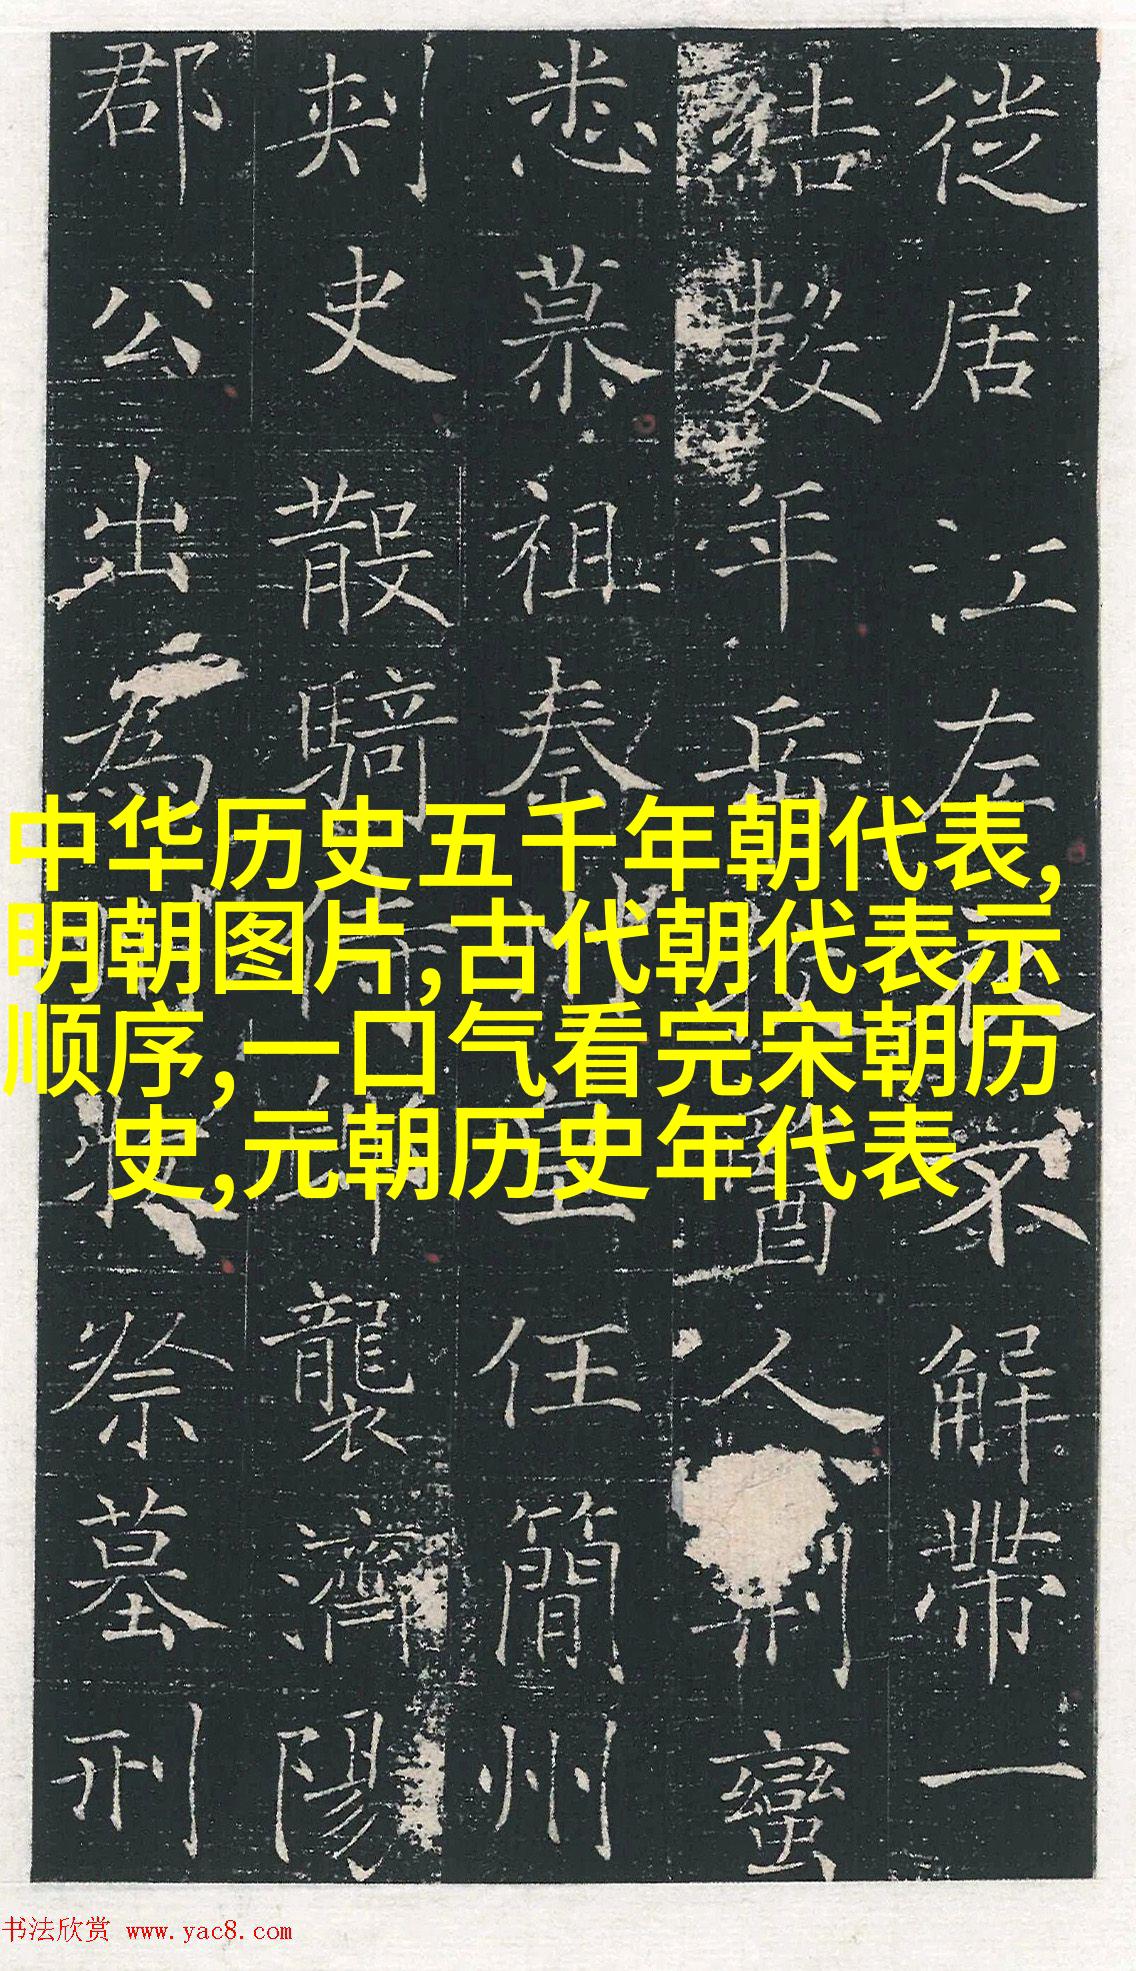 中华历史五千年朝代表,
明朝图片,古代朝代表示
顺序,一口气看完宋朝历
史,元朝历史年代表
徙居江左衣不解帶一
結數年岳酋人制蠻
悉慕祖秦皇任簡州
刾史散騎侍郎襲濟陽
郡公出為祭墓刑
书法欣赏 www.yac8.com